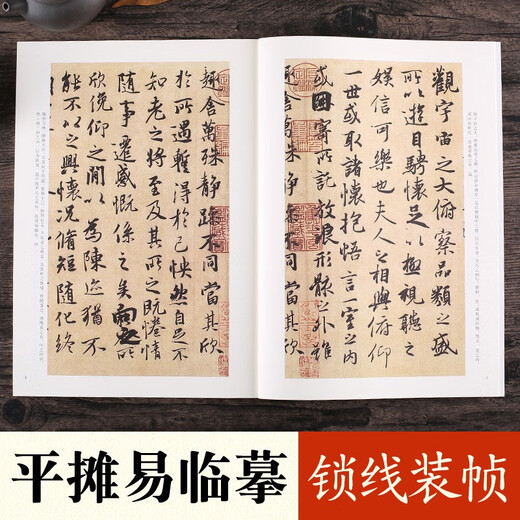 觀宇宙之大俯察品類之盛
所以遊目騁懷足以極視聽之
娛信可樂也夫人之相與俯仰
一世或取諸懷抱悟言一室之內
或因寄所託放浪形骸之外雖
趣舍萬殊靜躁不同當其欣
趣舍萬殊靜躁不同當其欣
於所遇蹔得於己怏然自足不
知老之將至及其所之既惓情
隨事遷感慨係之矣向之所
欣俛仰之閒以為陳迹猶不
能不以之興懷況脩短隨化終
平摊易临摹
锁线装帧